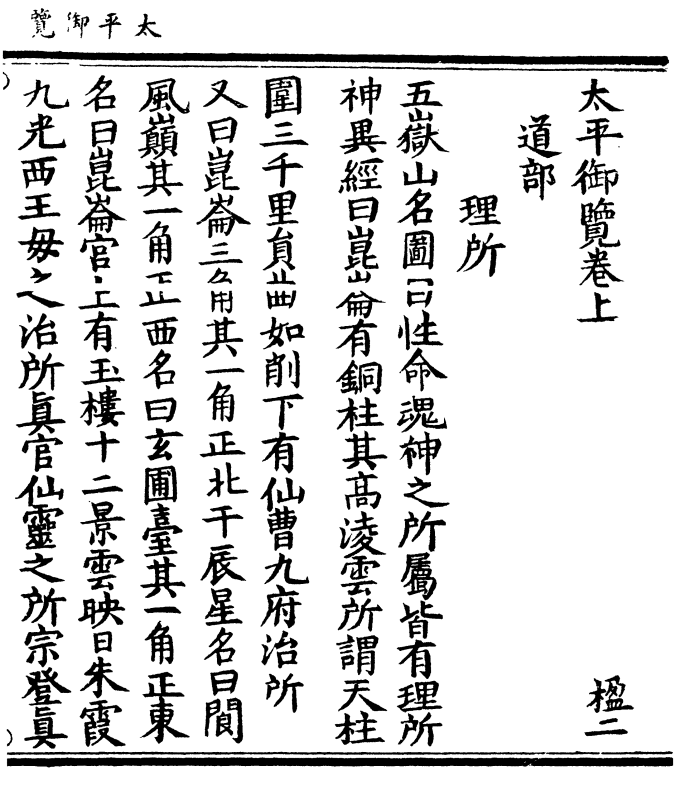 太平御覽
太平御覽卷上 楹二
道部
理所
五嶽山名圖曰性命魂神之所屬皆有理所
神異經曰崑崙有銅柱其髙淩雲所謂天柱
圍三千里貟曲如削下有仙曹九府治所
又曰崑崙三角其一角正北干辰星名曰閬
風巔其一角正西名曰玄圃臺其一角正東
名曰崑崙官上有玉樓十二景雲映日朱霞
九光西王毋之治所眞官仙靈之所宗登眞